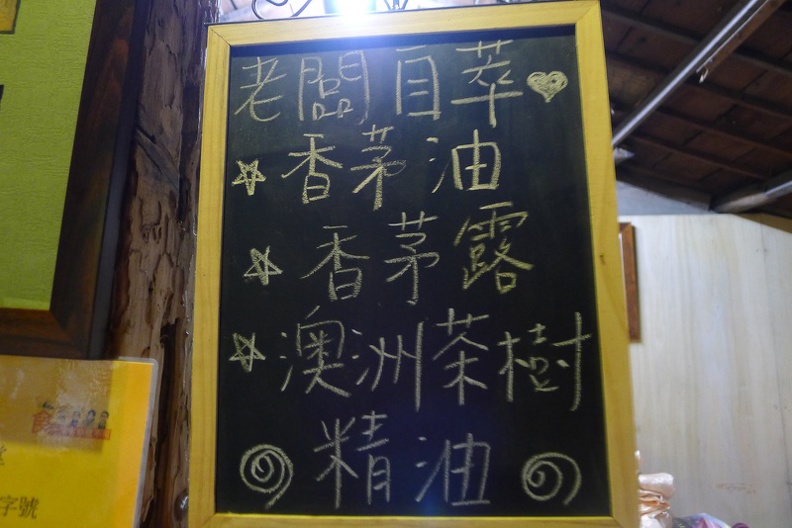 老闆自萃
香茅油
香茅露
澳洲茶樹
精油
字號